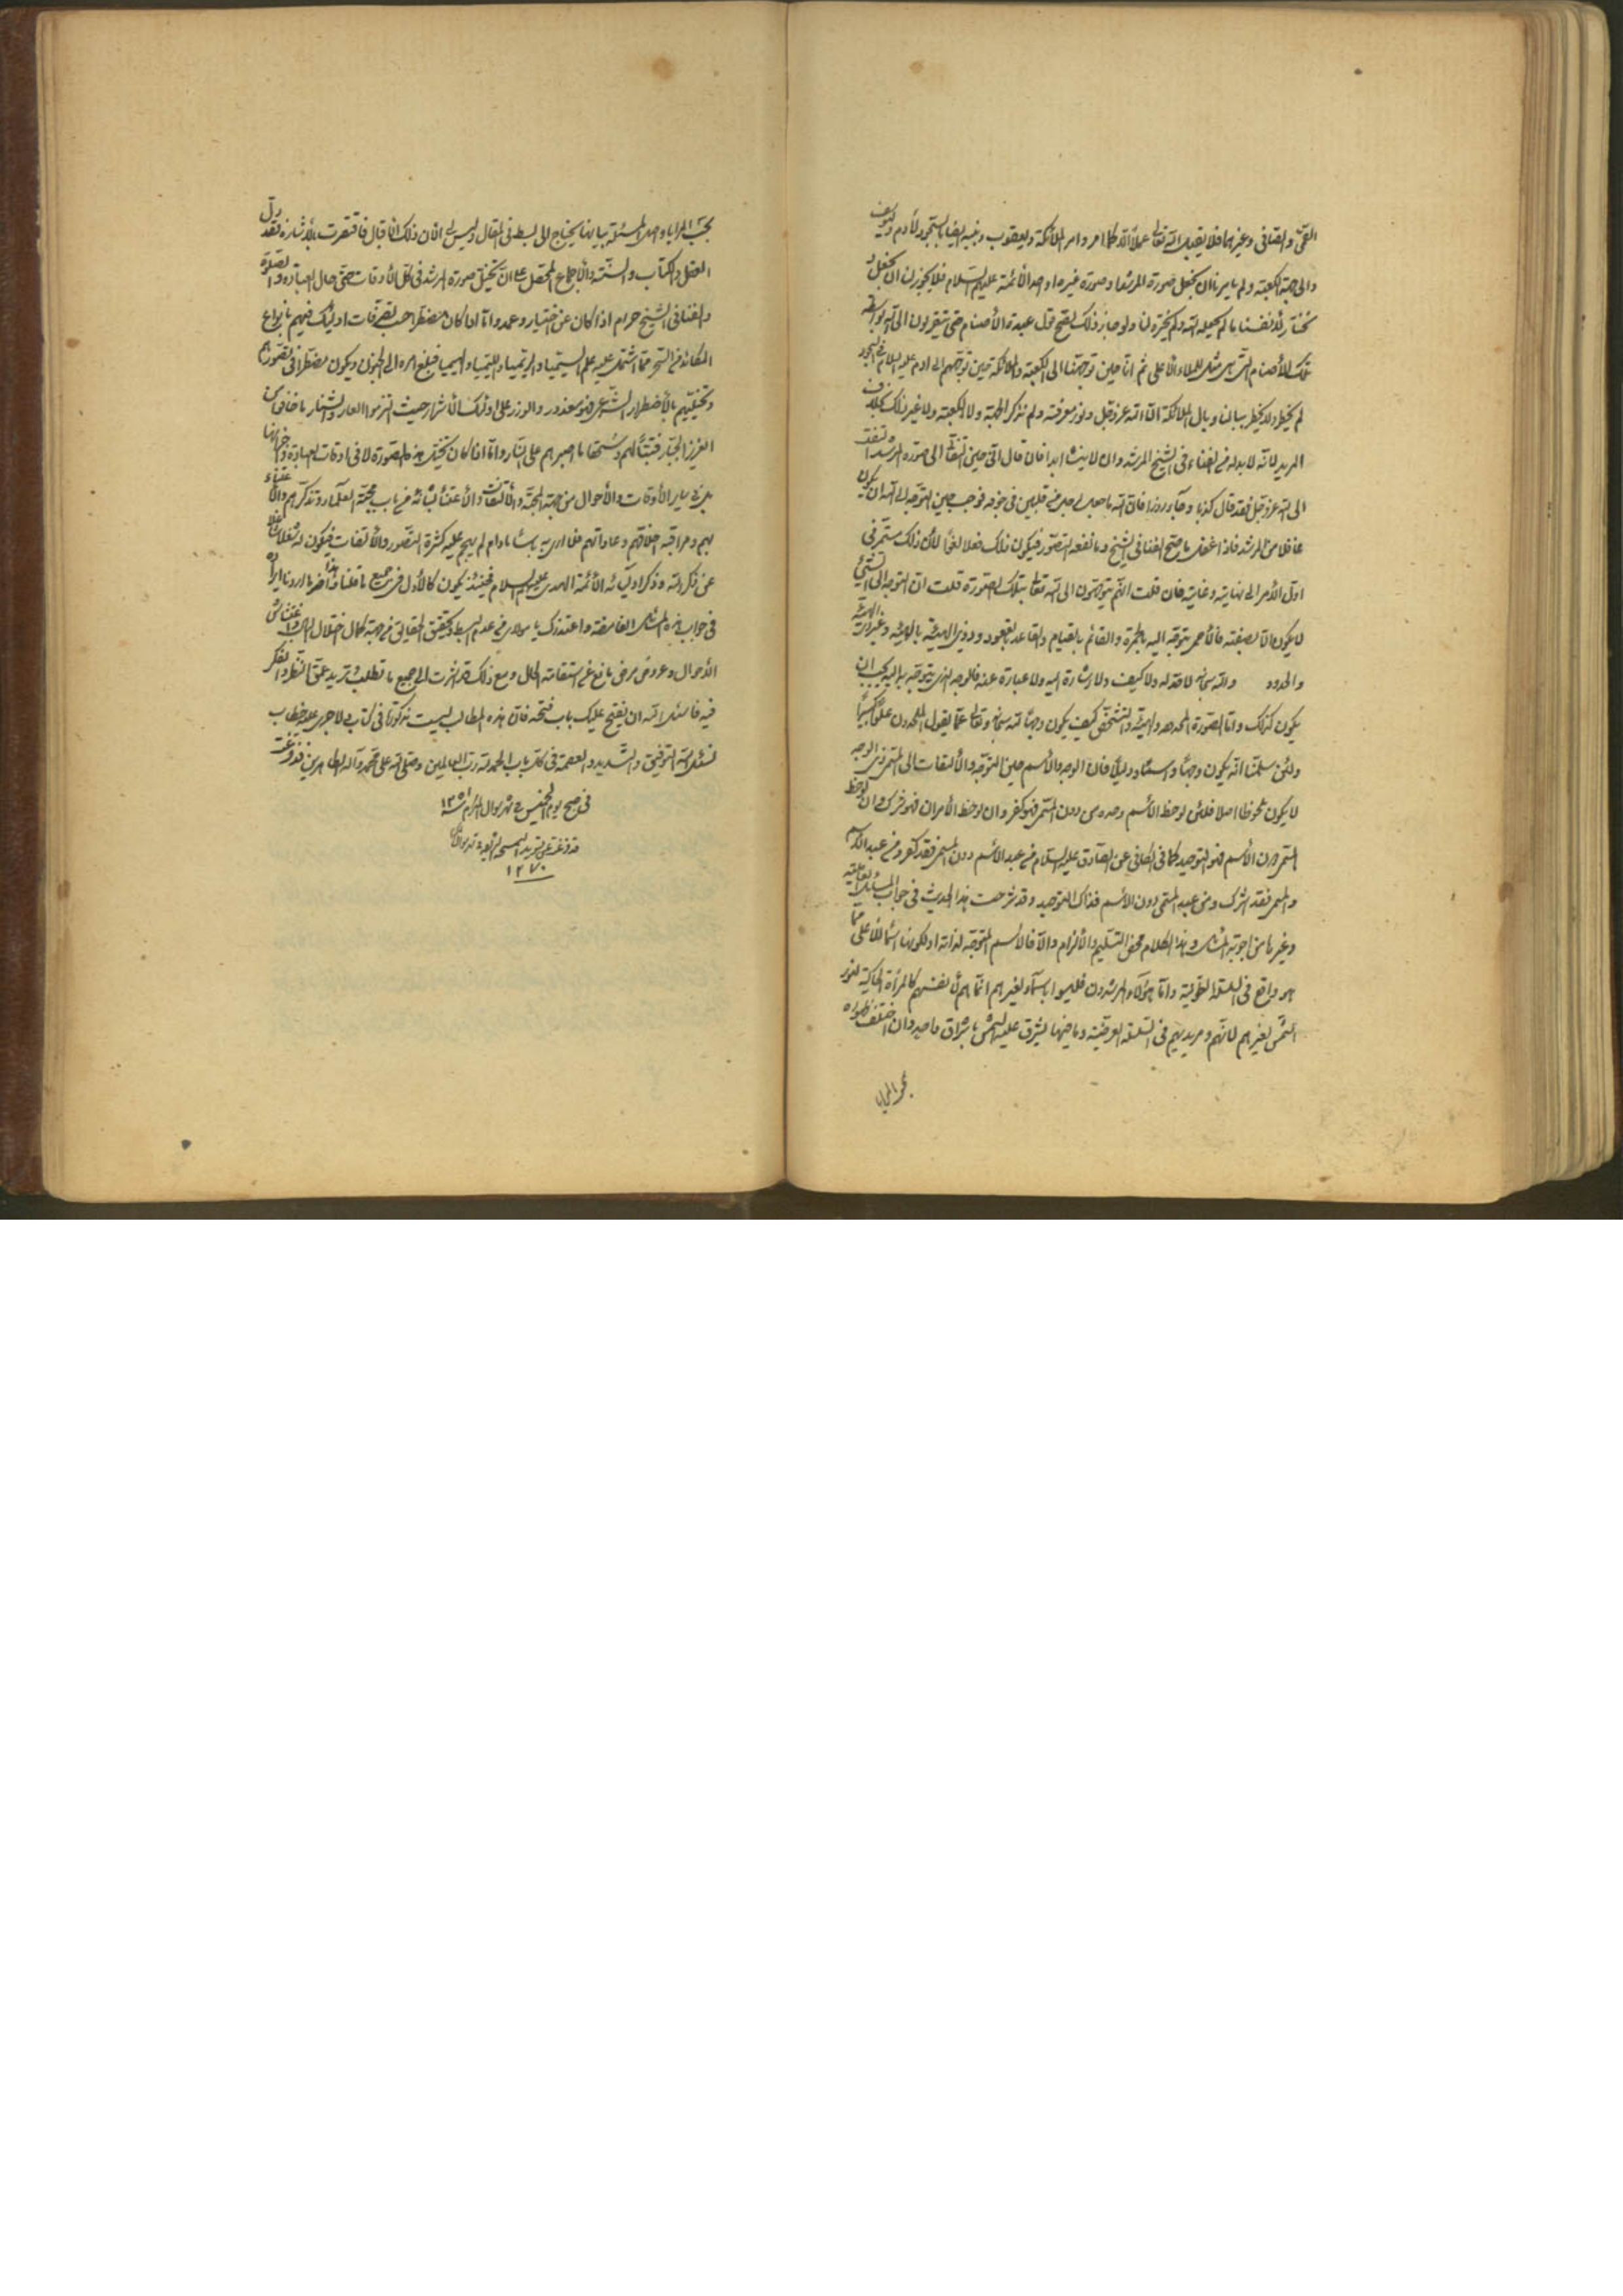 القمّي والصافي وغيرهما فلا يقبل الله تعالى عملاً الا كما امر وامر الملائكة ويعقوب وبنيه ايضا بالسجود لأدم ويوسف
والى جهة الكعبة ولم يامرنا ان نجعل صورة المرشد او صورة غيره او احد الأئمة عليهم السلام فلا يجوز لنا ان نجعل
نختار لأنفسنا ما لم يجعله الله ولم يختره لنا ولو جاز ذلك لصح قول عبدة الأصنام حتى يتقربون الى الله بواسطة
تلك الأصنام التي هي مثل للملاء الأعلى ثم انا حين توجهنا الى الكعبة والملائكة حين توجههم الى ادم عليه السلام في السجود
لم يخطر ولا يخطر ببالنا وبال الملائكة الا الله عز وجل ونور معرفته ولم نذكر الجهة ولا الكعبة ولا غير ذلك بخلاف
المريد لأنه لا بد له في الفناء في الشيخ المرشد وان لا ينساه ابدا فان قال اني حين التفت الى صورة المرشد التفت
الى الله عز وجل فقد قال كذبا وجاء زورا فان الله ما جعل لرجل من قلبين في جوفه فوجب حين التوجه الى الله ان يكون
غافلا من المرشد فاذا غفل ما صح الفناء في الشيخ وما نفعه التصور فيكون ذلك فعلا لغوا لأن ذلك مستمر في
اول الأمر الى نهايته وغايته فان قلت انهم يتوجهون الى الله تعالى بتلك الصورة قلت ان التوجه الى الشيء
لا يكون الا بصفته فالأحمر يتوجه اليه بالحمرة والقائم بالقيام والقاعد بالقعود وذي الهيئة بالهيئة وغيرها
والحدود والله سبحانه لا حد له ولا كيف ولا اشارة اليه ولا عبارة عنه فالوجه الذي يتوجه به اليه يجب ان
يكون كذلك واما الصورة المحدودة والهيئة والتشخص كيف يكون وجها لله سبحانه وتعالى عما يقول الملحدون علوا كبيرا
ولئن سلمنا انه يكون وجها واسما ودليلا فان الوجه والأسم حين التوجه والألتفات الى المسمى ذي الوجه
لا يكون ملحوظا اصلا فلئن لوحظ الأسم وحده من دون المسمى فهو كفر وان لوحظ الأمران فهو شرك وان لوحظ
المسمى دون الأسم فهو التوحيد كما في الكافي عن الصادق عليه السلام من عبد الأسم دون المسمى فقد كفر ومن عبد الأسم
والمسمى فقد اشرك ومن عبد المسمى دون الأسم فذاك التوحيد وقد شرحت هذا الحديث في جواب المسائل
وغيرها من اجوبة المسائل وهذا الكلام محض التسليم والألزام والا فالأسم المتوجه لذاته او لكونها اسما للأعلى مما
هو واقع في السلسلة الطولية واما هؤلاء المرشدون فليسوا باسماء لغيرهم انما هم لأنفسهم كالمرأة الحاكية لنور
الشمس لغيرهم لأنهم ومريديهم في السلسلة العرضية وما فيها يشرق عليه الشمس باشراق واحد وان اختلف ظهوره
بحسب المرايا
بحسب المرايا وهذه المسئلة بيانها يحتاج الى بسط في المقال وليس لي الان ذلك الاقبال فاقتصرت بالأشارة فقد دل
العقل والكتاب والسنة والأجماع المحصل على ان تخيل صورة المرشد في كل الأوقات حتى حال العبادة والصلوة
والفناء في الشيخ حرام اذا كان عن اختيار وعمد واما اذا كان مضطرا حسب تصرفات اولئك فيهم بانواع
المكائد من السحر مما اشتمل عليه علم السيميا والريميا والليميا والهيميا فبلغ امره الى الجنون ويكون مضطرا في تصورهم
وتخيلهم بالأضطرار الشرعي فهو معذور والوزر على اولئك الأشرار حيث التزموا العار والشنار ما خافوا من
العزيز الجبار فتبا لهم وسحقا ما اصبرهم على النار واما اذا كان تخيل هذه الصورة لا في اوقات العبادة
بل في ساير الأوقات والأحوال من جهة المحبة والألتفات والأعتناء بشأنه من باب محبة العلماء وتذكرهم والأعتناء
بهم ومراقبة اخلاقهم وعاداتهم فلا ارى به باسا ما دام لم يهج عليه كثرة التصور والألتفات فيكون له شغلا
عن ذكر الله وذكر اوليائه الأئمة الهدى عليهم السلام فحينئذ يكون كالأول في جميع ما قلنا وهذا اخر ما اردنا ايراده
في جواب هذه المسائل الغامضة واعتذر اليك يا مولاي من عدم البسط وتحقيق الحقايق من جهة كمال اختلال البال واغتشاش
الأحوال وعروض مرض مانع من استقامة الحال ومع ذلك قد اشرت الى جميع ما تطلب وتريد عمق النظر والفكر
فيه فاسئل الله ان يفتح عليك باب فتحه فان هذه المطالب ليست مذكورة في كتاب ولا جرى عليه خطاب
نسئل الله التوفيق والتسديد والعصمة في كل باب والحمد لله رب العالمين وصلى الله على محمد واله الطاهرين قد فرغت
في صبح يوم الخميس في شهر شوال المكرم ١٢٥١
قد فرغت من تسويد النسخة الشريفة
١٢٧٠